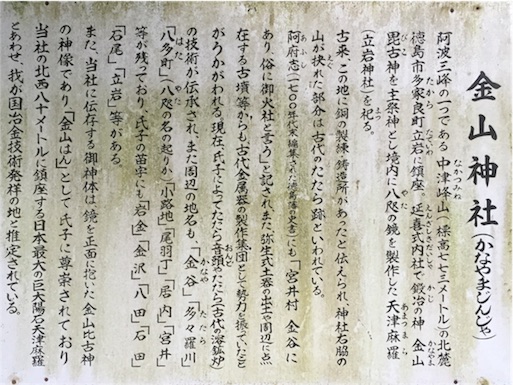 金山神社(かなやまじんじゃ)
阿波三峰の一つである中津峰山(標高七七三メートル)の北麓
徳島市多家良町立岩に鎮座、延喜式内社で鍛冶の神 金山
毘古神を主祭神とし境内に八咫の鏡を製作した天津麻羅
(立岩神社)を祀る。
古来、この地に銅の製練 鋳造所があったと伝えられ、神社右脇の
山が挟れた部分は古代のたたら跡といわれている。
阿府志(一七〇〇年代末編集された徳島藩の史書)にも「宮井村 金谷に
あり、俗に御火社と言う」と記され、また弥生式土器の出土や周辺に点
在する古墳等からも古代金属器の製作集団として勢力を振っていたこと
がうかがわれる。現在、氏子によってたたら音頭やたたら(古代の溶鉱炉)
の技術が伝承され、また周辺の地名も、「金谷」「多々羅川」
「八多町」八咫の名の起りか、「小路地」「尾羽丁」「居内」「宮井」
等が残っており、氏子の苗字にも「岩金」「金沢」「八田」「石田」
「石尾」「立岩」等がある。
また、当社に伝存する御神体は鏡を正面に抱いた金山比古神
の神像であり、「金山はん」として氏子に尊崇されており
当社の北西八十メートルに鎮座する日本最大の巨大陽石天津麻羅
とあわせ、我が国冶金技術発祥の地と推定されている。